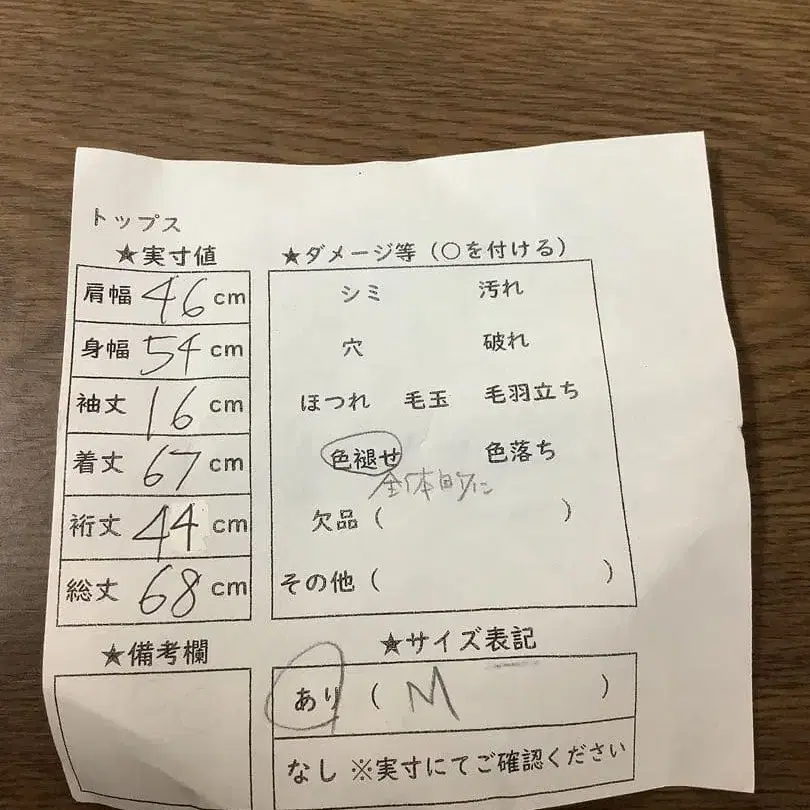 トップス
★実寸値
肩幅 46 cm
身幅 54 cm
袖丈 16 cm
着丈 67 cm
裄丈 44 cm
総丈 68 cm
★備考欄
★ダメージ等（○を付ける）
シミ 汚れ
穴 破れ
ほつれ 毛玉 毛羽立ち
色褪せ 色落ち
全体的に
欠品（ ）
その他（ ）
★サイズ表記
あり（ M ）
なし ※実寸にてご確認ください